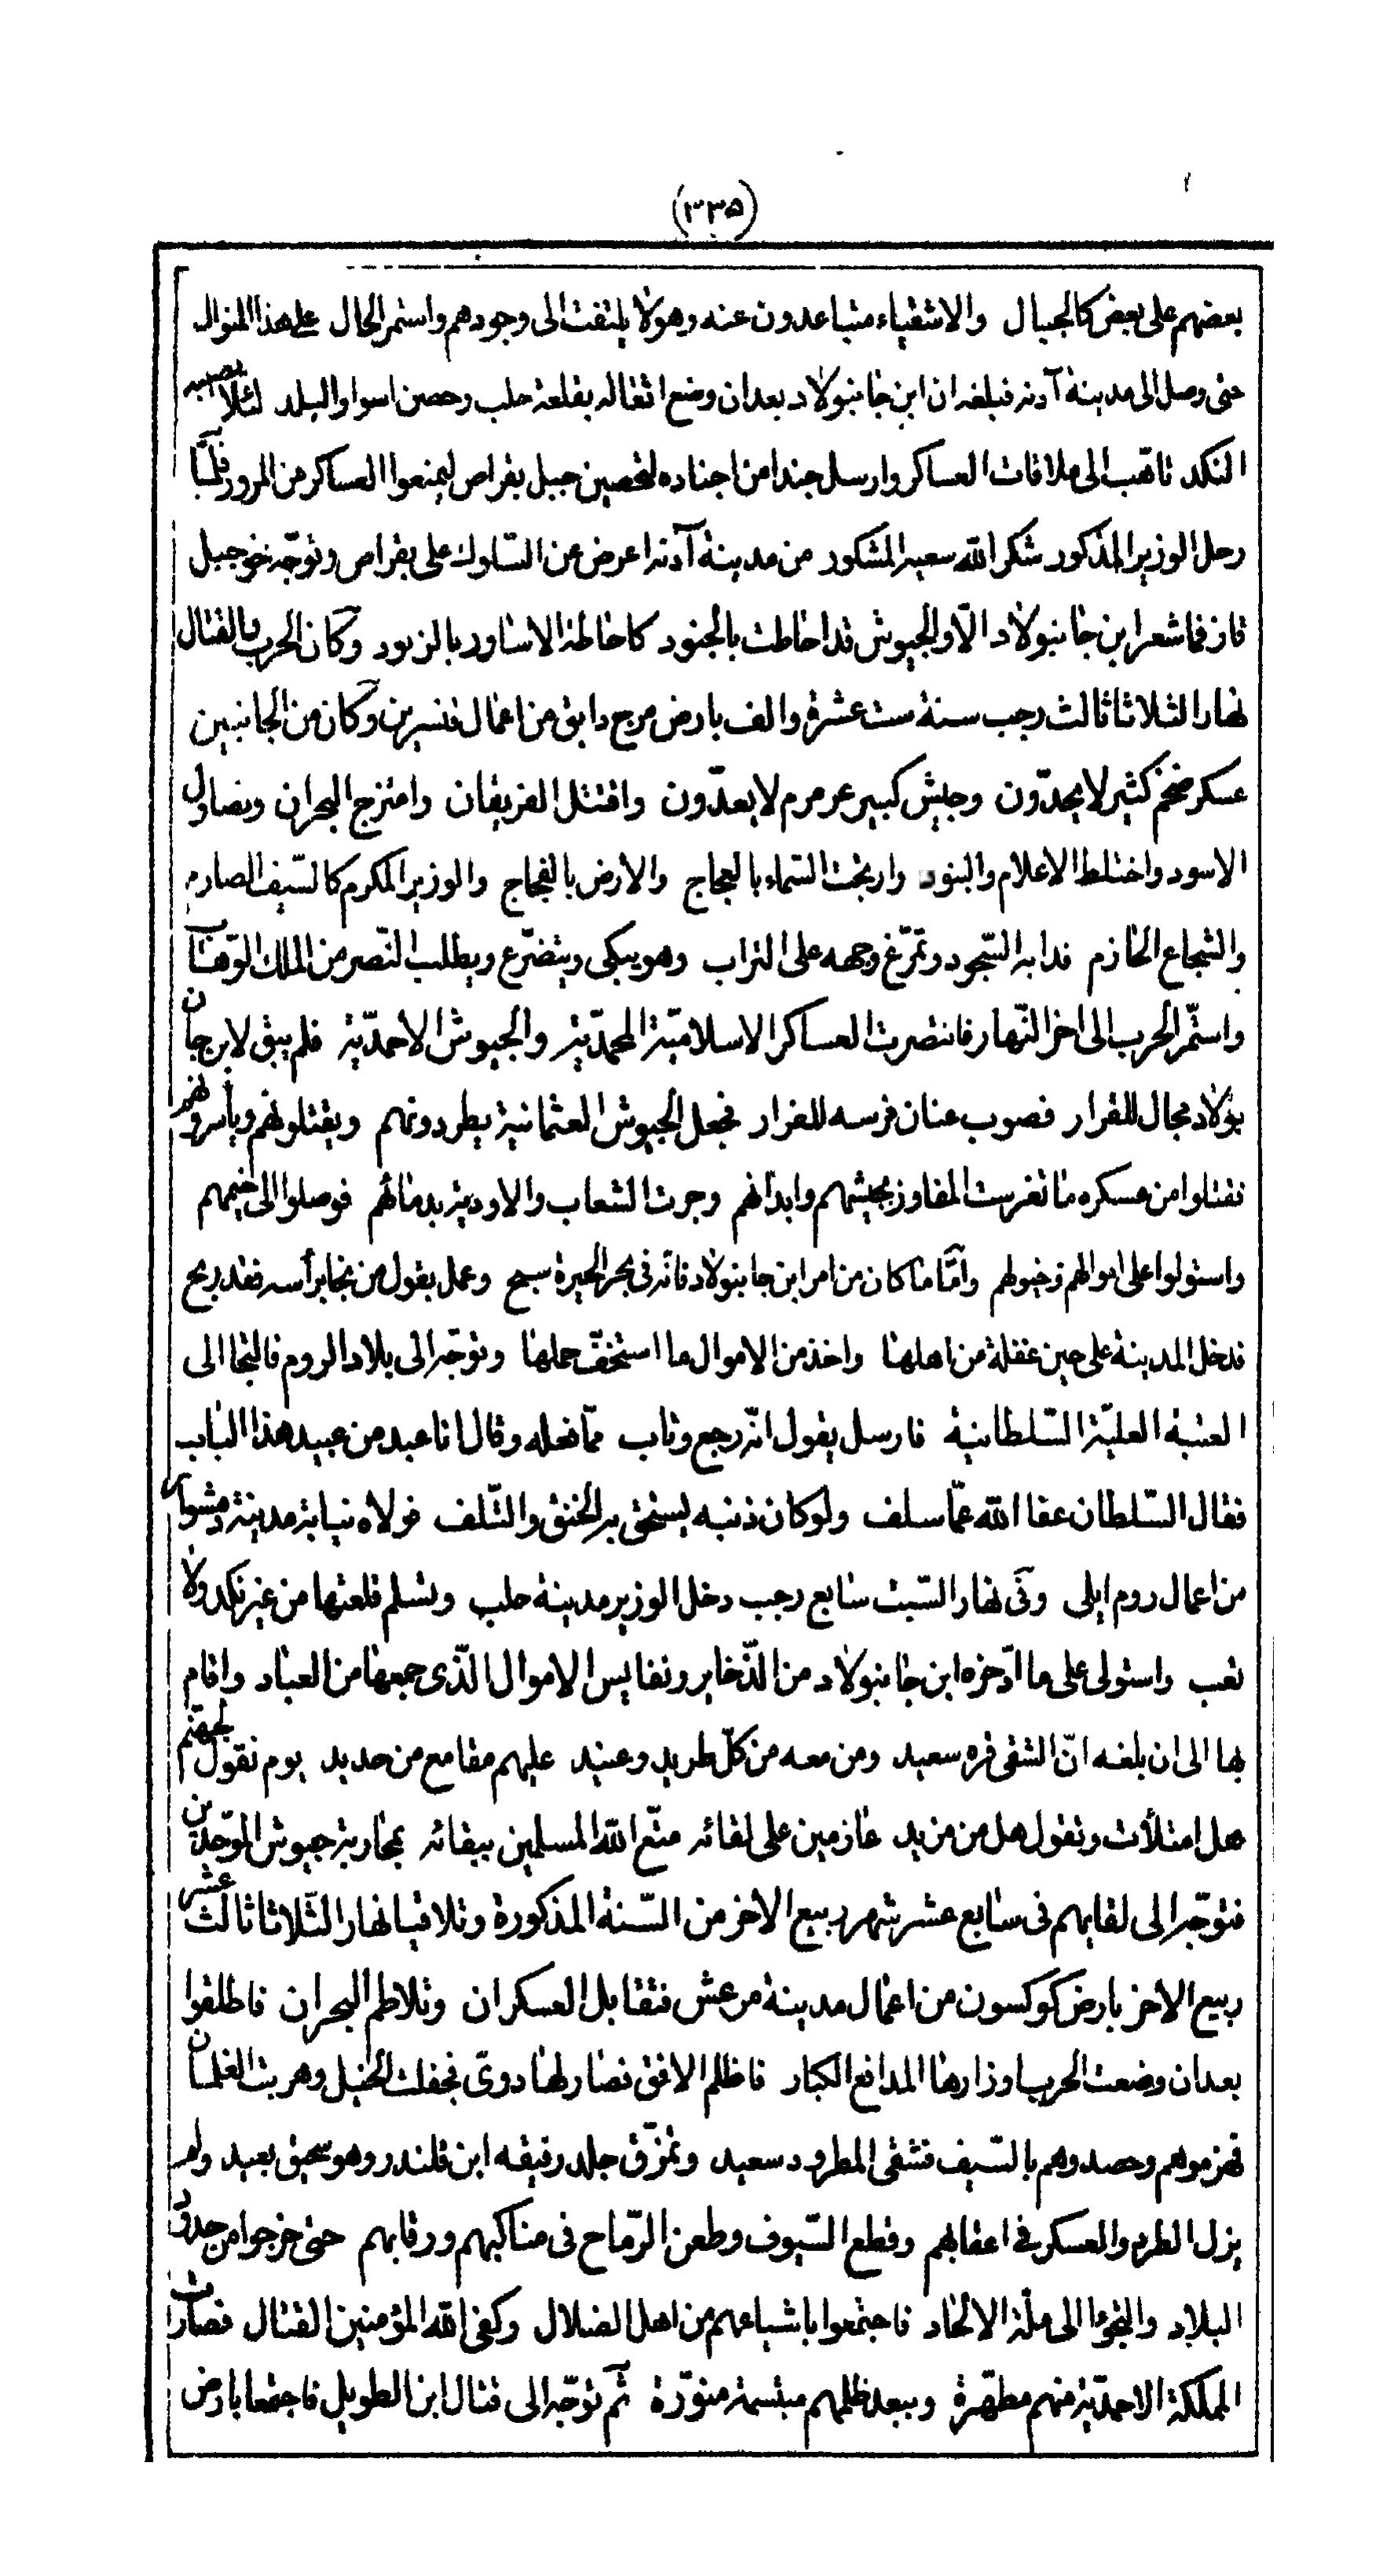 (٣٣٥)
بعضهم على بعض كالجبال والاشقياء متباعدون عنه وهو لا يلتفت الى وجودهم واستمر الحال على هذا المنوال
حتى وصل الى مدينة آدنه فبلغه ان ابن جانبولاد بعد ان وضع اثقاله بقلعة حلب وحصن اسوار البلد لئلا يصيبه
النكد تاهب الى ملاقات العساكر وارسل جندا من اجناده لتحصين جبل بقراص ليمنعوا العساكر من المرور فلما
رحل الوزير المذكور شكر الله سعيه المشكور من مدينة آدنه اعرض عن السّلوك على بقراص وتوجّه نحو جبل
قاز فما شعر ابن جانبولاد الّا والجيوش قد احاطت بالجنود كاحاطة الاساور بالزنود وكان الحرب بالقتال
نهار الثلاثا ثالث رجب سنة ست عشرة والف بارض مرج دابق من اعمال قنسرين وكان من الجانبين
عسكر ضخم كثير لا يحدّون وجيش كبير عرمرم لا يعدّون واقتتل الفريقان وامتزج البحران وتصاول
الاسود واختلط الاعلام والبنود وارتجت السّماء بالعجاج والارض بالفجاج والوزير المكرم كالسّيف الصارم
والشجاع الحازم فدابه السّجود وتمرّغ وجهه على التراب وهو يبكى ويتضرّع ويطلب النّصر من الملك الوهّاب
واستمّر الحرب الى اخر النّهار فانتصرت العساكر الاسلاميّة المحمديّة والجيوش الاحمديّة فلم يبق لابن جان
بولاد مجال للقرار فصوب عنان فرسه للفرار فجعل الجيوش العثمانية يطردونهم ويقتلونهم ويأسرونهم
فقتلوا من عسكره ما تغرست المفاوز بجيشهم وابدانهم وجرت الشعاب والاودية بدمائهم فوصلوا الى خيمهم
واستولوا على اموالهم وخيولهم وامّا ما كان من امر ابن جانبولاد فانّه فى بحر الحيرة سبح وعمل بقول من نجا برأسه فقد ربح
فدخل المدينة على حين غفلة من اهلها واخذ من الاموال ما استخفّ حملها وتوجّه الى بلاد الروم فالتجا الى
العتبة العليّة السّلطانية فارسل يقول انّه رجع وتاب ممّا فعله وقال انا عبد من عبيد هذا الباب
فقال السّلطان عفا الله عمّا سلف ولو كان ذنبه يستحق به الخنق والتّلف فولاه نيابة مدينة دمشوار
من اعمال روم ايلى وفى نهار السّبت سابع رجب دخل الوزير مدينة حلب وتسلم قلعتها من غير نكد ولا
تعب واستولى على ما ادّخره ابن جانبولاد من الذّخاير ونفايس الاموال الّذى جمعها من العباد واقام
بها الى ان بلغه انّ الشقى قره سعيد ومن معه من كلّ طريد وعنيد عليهم مقامع من حديد يوم نقول لجهنّم
هل امتلأت وتقول هل من مزيد عازمين على لقائه متّع الله المسلمين ببقائه بمحاربة جيوش الموحّدين
فتوجّه الى لقايهم فى سابع عشر شهر ربيع الاخر من السّنة المذكورة وتلاقيا نهار الثّلاثا ثالث عشر
ربيع الاخر بارض كوكسون من اعمال مدينة مرعش فتقابل العسكران وتلاطم البحران فاطلقوا
بعد ان وضعت الحرب اوزارها المدافع الكبار فاظلم الافق فصار لها دوىّ فجفلت الخيل وهربت الغلمان
فهزموهم وحصدوهم بالسّيف فشقى المطرود سعيد وتمزّق جلد رفيقه ابن قلندر وهو سحيق بعيد ولم
يزل الطرد والعسكر فى اعقابهم وقطع السّيوف وطعن الرّماح فى مناكبهم ورقابهم حتى خرجوا من حدود
البلاد والتجؤا الى ملّة الالحاد فاجتمعوا باشباعهم من اهل الضلال وكفى الله المؤمنين القتال فصارت
المملكة الاحمديّة منهم مطهّرة وببعد ظلمهم مبتسمة منوّرة ثم توجّه الى قتال ابن الطويل فاجتمعا بارض